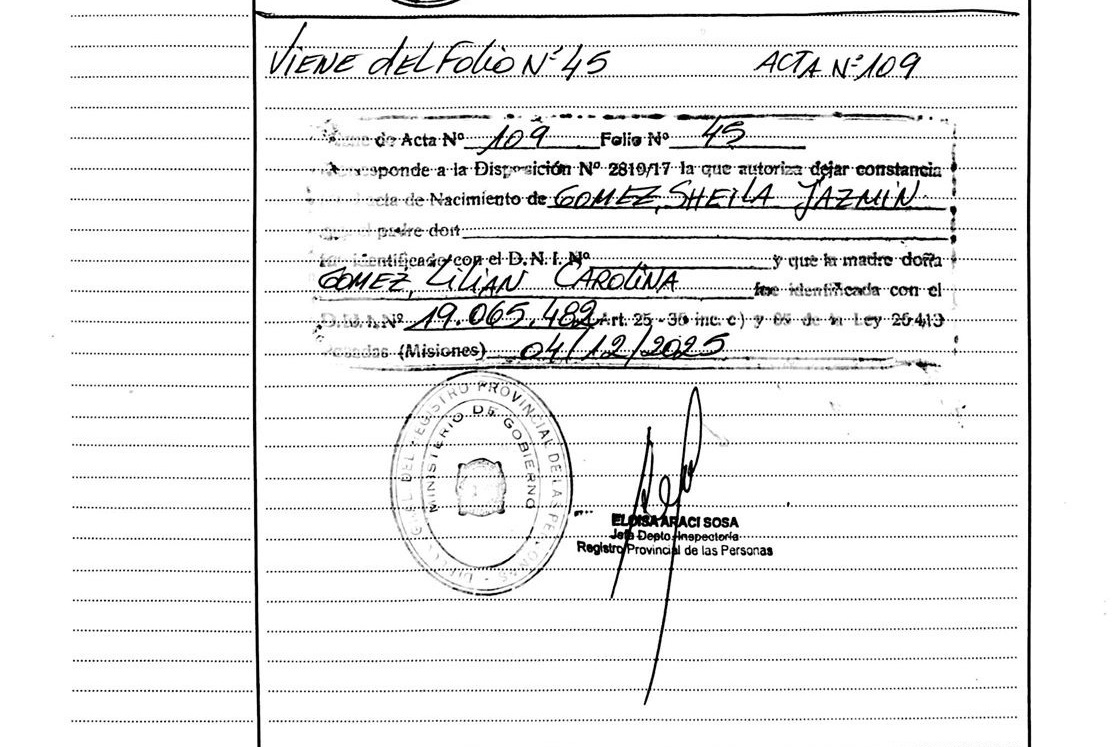 VIENE DEL FOLIO Nº 45 ACTA Nº 109
de Acta Nº 109 Folio Nº 45
sponde a la Disposición Nº 2810/17 la que autoriza dejar constancia
cta de Nacimiento de GOMEZ, SHEILA JAZMIN
padre don
identificado con el D.N.I. Nº y que la madre doña
GOMEZ, LILIAN CAROLINA fue identificada con el
D.N.I. Nº 19.065.482 Art. 25 - 36 inc. c) y 85 de la Ley 26413
Posadas (Misiones) 04/12/2025
DEL REGISTRO PROVINCIAL DE LAS PERSONAS
MINISTERIO DE GOBIERNO
ELOISA ARACI SOSA
Jefa Depto. Inspectoría
Registro Provincial de las Personas